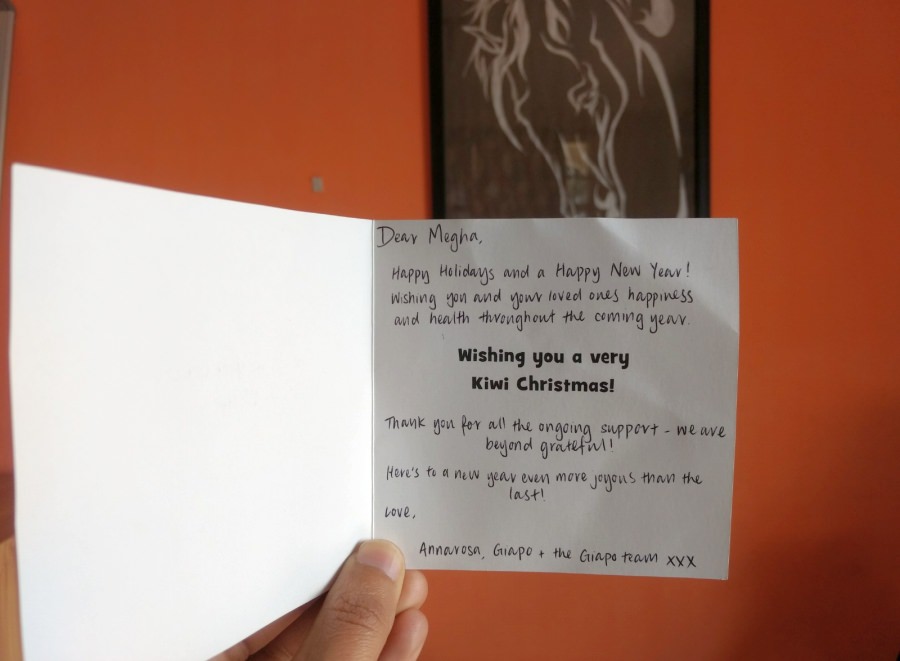 Dear Megha,
Happy Holidays and a Happy New Year!
Wishing you and your loved ones happiness
and health throughout the coming year.
Wishing you a very
Kiwi Christmas!
Thank you for all the ongoing support - we are
beyond grateful!
Here's to a new year even more joyous than the
last!
Love,
Annarosa, Giapo + the Giapo team xxx